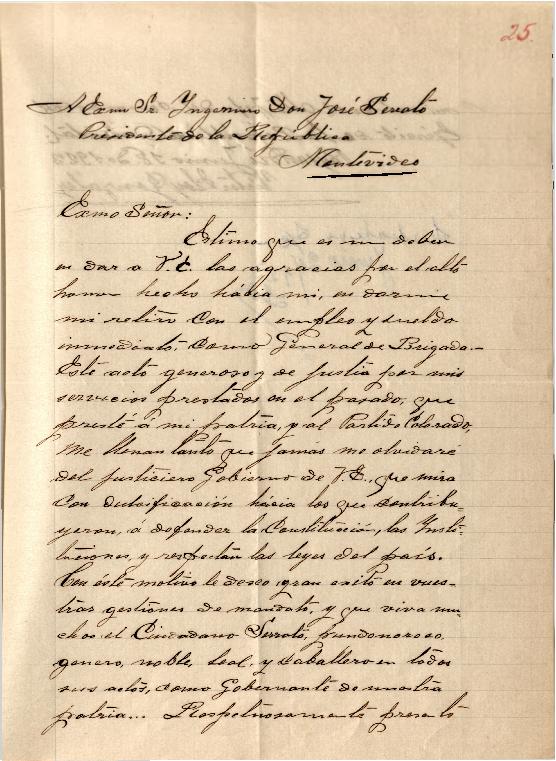 25.
A Exmo Sr. Ingeniero Don José Serrato
Presidente de la República
Montevideo
Exmo Señor:
Estimo que es un deber
en dar a V.E. las agracias por el alto
honor hecho hácia mi, en darme
mi retiro con el empleo y sueldo
inmediato, como General de Brigada.-
Este acto generoso y de justia por mis
servicios prestados en el pasado, que
presté á mi patria, y al Partido Colorado,
me llenan tanto que jamás me olvidaré
del justiciero Gobierno de V.E., que mira
con dulcificación hácia los que contribu-
yeron, á defender la Constitución, las Insti-
tuciones, y respetan las leyes del país.
Con este motivo le deseo, gran exito en vues-
tras gestiones de mandato, y que viva mu-
chos el Ciudadano Serrato, pundonoroso,
genero, noble, leal, y caballero en todos
sus actos, como Gobernante de nuestra
patria... Respetuosamente presento